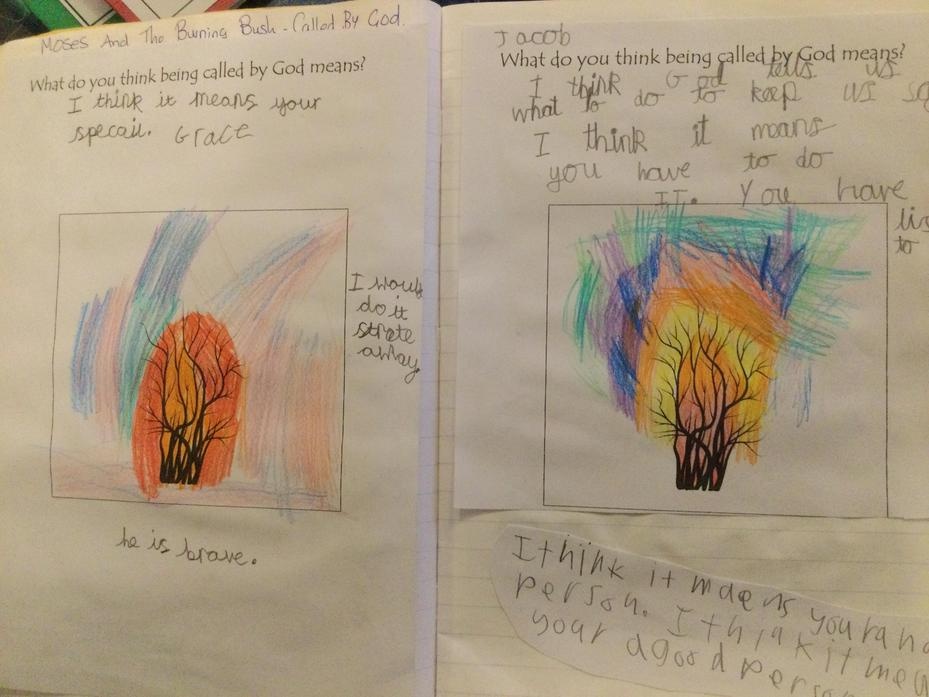 Moses And The Burning Bush - Called By God.
What do you think being called by God means?
I think it means your
specail. Grace
I would
do it
strate
away.
he is brave.
Jacob
What do you think being called by God means?
I think God tells us
what to do to keep us
I think it means
you have to do
IT. You have
to
I think it means you
person. I think it
your a good person